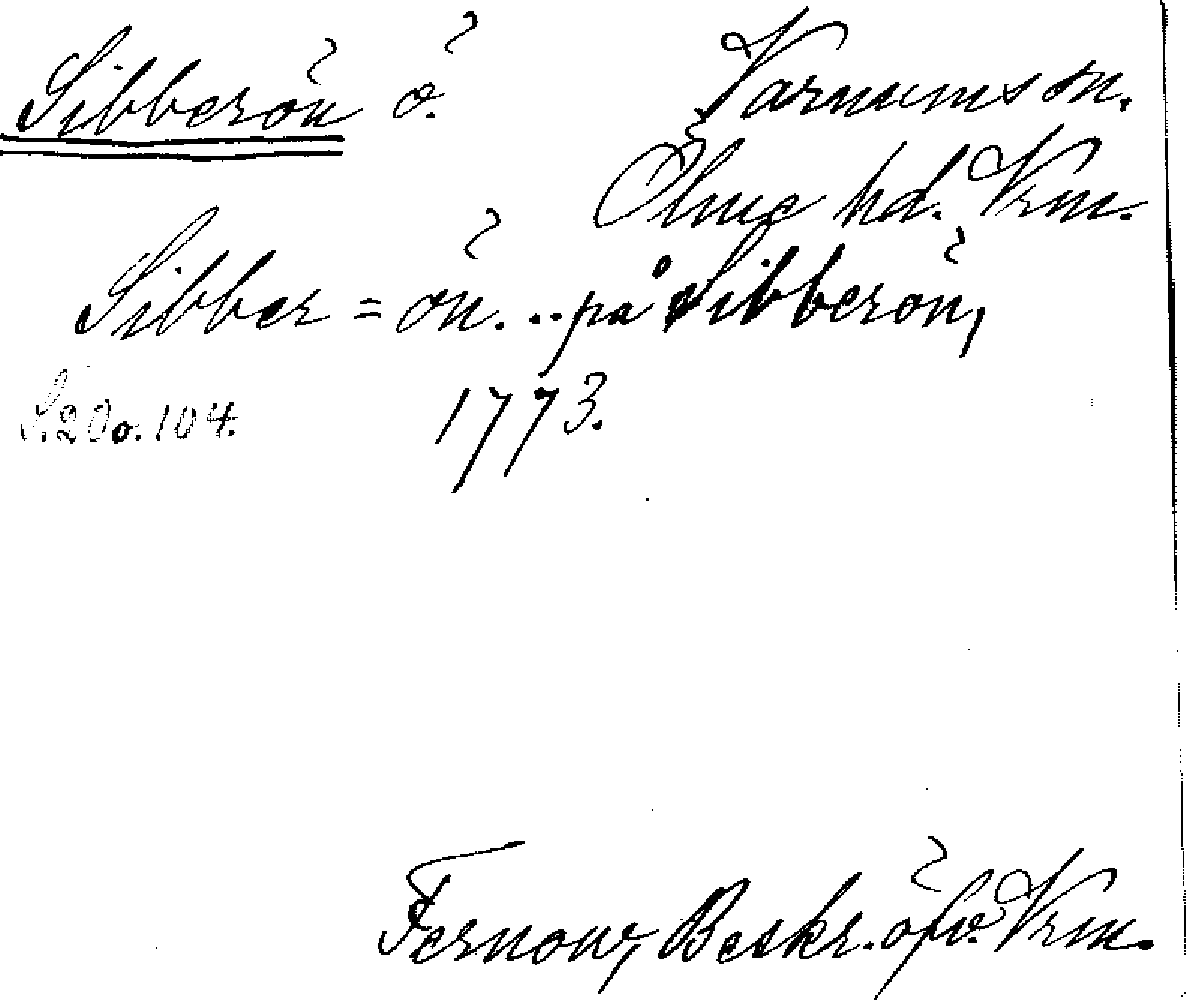 Sibberön ö. Varnums sn.
Ölme hd. Vrm.
Sibber=ön... på Sibberön,
S. 20 o. 104. 1773.
Fernow, Beskr. öfv. Vrm.